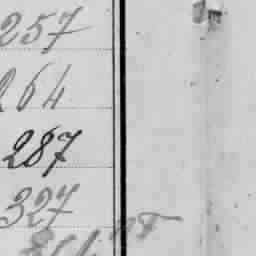 257
264
287
327